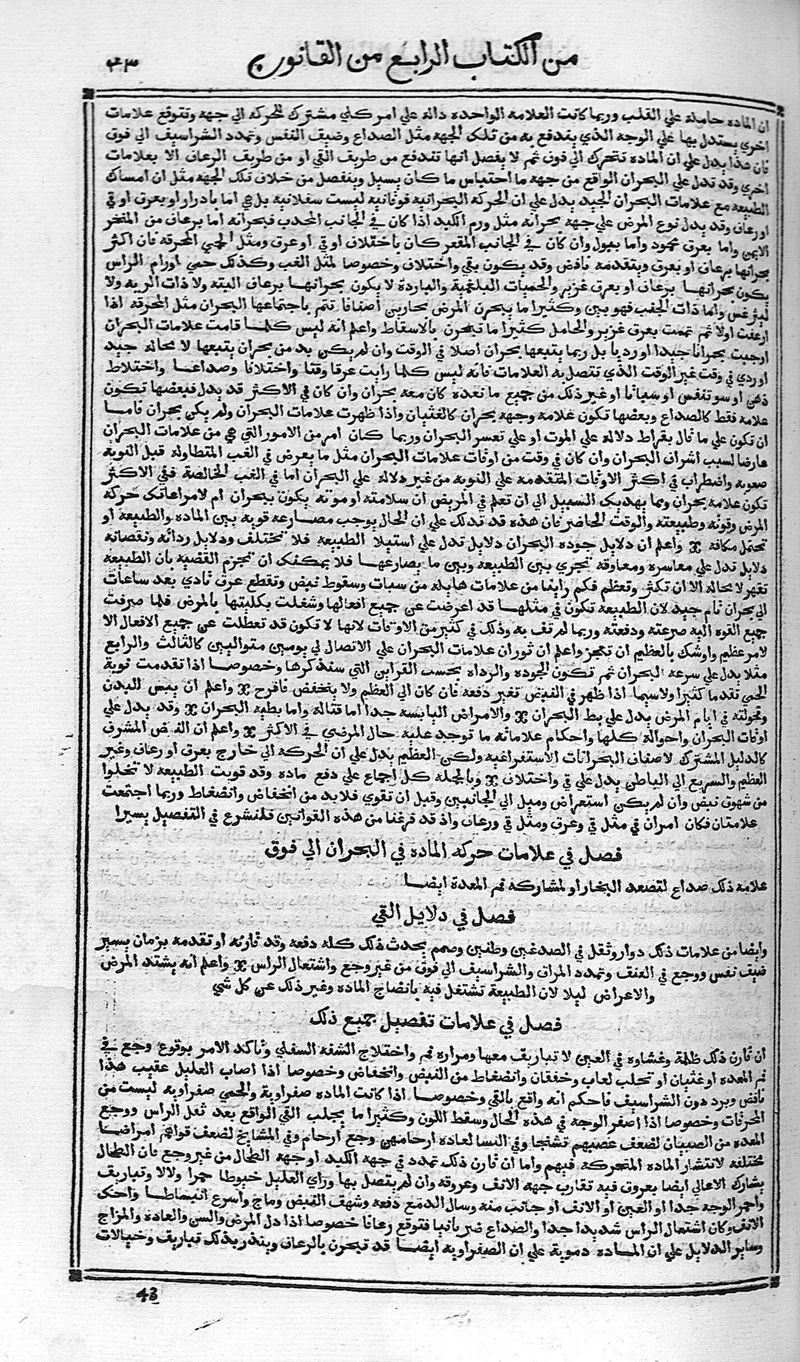 من الكتاب الرابع من القانون
٤٣
ان الماده حامله علي القلب وربما كانت العلامه الواحده داله علي امر كلي مشترك للحركه الي جهه وتتوقع علامات
اخري يستدل بها علي الوجه الذي يندفع به من تلك الجهه مثل الصداع وضيف النفس وتمدد الشراسيف الي فوق
فان هذا يدل علي ان الماده تتحرك الي فوق ثم لا يفصل انها تندفع من طريف القي او من طريف الرعاف الا بعلامات
اخري وقد تدل علي البحران الواقع من جهه ما احتباس ما كان يسيل وينفصل من خلاف تلك الجهه مثل ان امساك
الطبيعه مع علامات البحران الجيد يدل علي ان الحركه البحرانيه فوقانيه ليست سفلانيه بل هي اما بادرار او بعرق او قي
او رعاف وقد يدل نوع المرض علي جهه بحرانه مثل ورم الكبد اذا كان في الجانب المحدب فبحرانه اما برعاف من المنخر
الايمن واما بعرق محمود واما ببول وان كان في الجانب المقعر كان باختلاف او قي او عرق ومثل الحمي المحرقه فان اكثر
بحرانها برعاف او بعرق ويتقدمه نافض وقد يكون بقي واختلاف وخصوصا لمثل الغب وكذلك حمي اورام الراس
يكون بحرانها برعاف او بعرق غزير والحميات البلغميه والبارده لا يكون بحرانها برعاف البته ولا ذات الريه ولا
ليثرغس واما ذات الجنب فهو بين وكثيرا ما يبحرن المرض بحارين اصنافا تتم باجتماعها البحران مثل المحرقه اذا
ارعفت اولا ثم تمت بعرق غزير والحامل كثيرا ما تبحرن بالاسقاط واعلم انه ليس كلما قامت علامات البحران
اوجبت بحرانا جيدا او رديا بل ربما يتبعها بحران اصلا في الوقت وان لم يكن بد من بحران يتبعها لا محاله جيد
او ردي في وقت غير الوقت الذي تتصل به العلامات فانه ليس كلما رايت عرقا وقتا واختلافا وصداعا واختلاط
ذهن او سو تنفس او سباتا او غير ذلك من جميع ما نعده كان معه بحران وان كان في الاكثر قد يدل فبعضها تكون
علامه فقط كالصداع وبعضها تكون علامه وجهه بحران كالغثيان واذا ظهرت علامات البحران ولم يكن بحران فاما
ان تكون علي ما قال بقراط دلاله علي الموت او علي تعسر البحران وربما كان امر من الامور التي هي من علامات البحران
عارضا لسبب اشراف البحران وان كان في وقت من اوقات علامات البحران مثل ما يعرض في الغب المتطاوله قبل النوبه
صعوبه واضطراب في اكثر الاوقات المتقدمه علي النوبه من غير دلاله علي البحران اما في الغب الخالصه ففي الاكثر
تكون علامه بحران ومما يهديك السبيل الي ان تعلم في المريض ان سلامته او موته يكون ببحران ام لا مراعاتك حركه
المرض وقوته وطبيعته والوقت الحاضر فان هذه قد تدلك علي ان الحال يوجب مصارعه قويه بين الماده والطبيعه او
تحتمل مكافه واعلم ان دلايل جوده البحران دلايل تدل علي استيلا الطبيعه فلا تختلف ودلايل ردائه ونقصانه
دلايل تدل علي معاسره ومعاوقه تجري بين الطبيعه وبين ما يصارعها فلا يمكنك ان تجزم القضيه بان الطبيعه
تقهر لا محاله الا ان تكثر وتعظم فكم راينا من علامات هايله من سبات وسقوط نبض وتقطع عرق تادي بعد ساعات
الي بحران تام جيد لان الطبيعه تكون في مثلها قد اعرضت عن جميع افعالها وشغلت بكليتها بالمرض فلما صرفت
جميع القوه اليه صرعته ودفعته وربما لم تف به وذلك في كثير من الاوقات لانها لا تكون قد تعطلت عن جميع الافعال الا
لامر عظيم واوشك بالعظيم ان تعجز واعلم ان ثوران علامات البحران علي الاتصال في يومين متواليين كالثالث والرابع
مثلا يدل علي سرعه البحران ثم تكون الجوده والرداه بحسب القراين التي سنذكرها وخصوصا اذا تقدمت نوبه
الحمي تقدما كثيرا ولاسيما اذا ظهر في النبض تغير دفعه فان كان الي العظم ولا ينخفض فافرح واعلم ان يبس البدن
وقحولته في ايام المرض يدل علي بط البحران والامراض اليابسه جدا اما قتاله واما بطيه البحران وقد يدل علي
اوقات البحران واحواله كلها واحكام علاماته ما توجد عليه حال المرضي في الاكثر واعلم ان النبض المشرف
كالدليل المشترك لاصناف البحرانات الاستفراغيه ولكن العظيم يدل علي ان الحركه الي خارج بعرق او رعاف وغير
العظيم والسريع الي الباطن يدل علي قي واختلاف وبالجمله كل اجماع علي دفع ماده وقد قويت الطبيعه لا تخلوا
من شهوق نبض وان لم يكن استعراض وميل الي الجانبين وقبل ان تقوي فلا بد من انخفاض وانضغاط وربما اجتمعت
علامتان فكان امران في مثل قي وعرق ومثل قي ورعاف واذ قد فرغنا من هذه القوانين فلنشرع في التفصيل يسيرا
فصل في علامات حركه الماده في البحران الي فوق
علامه ذلك صداع لتصعد البخار او لمشاركه فم المعده ايضا
فصل في دلايل القي
وايضا من علامات ذلك دوار وثقل في الصدغين وطنين وصمم يحدث ذلك كله دفعه وقد قارنه او تقدمه بزمان يسير
ضيف نفس ووجع في العنف وتمدد المراق والشراسيف الي فوق من غير وجع واشتعال الراس واعلم انه يشتد المرض
والاعراض ليلا لان الطبيعة تشتغل فيه بانضاج الماده وغير ذلك عن كل شي
فصل في علامات تفصيل جميع ذلك
ان قارن ذلك ظلمة وغشاوه في العين لا تباريف معها ومراره فم واختلاج الشفه السفلي وتاكد الامر بوقوع وجع في
فم المعده او غثيان او تحلب لعاب وخفقان وانضغاط من النبض وانخفاض وخصوصا اذا اصاب العليل عقيب هذا
نافض وبرد دون الشراسيف فاحكم انه واقع بالقي وخصوصا اذا كانت الماده صفراوية والحمي صفراويه ليست من
المحرقات وخصوصا اذا اصفر الوجه في هذه الحال وسقط اللون وكثيرا ما يجلب القي الواقع بعد ثقل الراس ووجع
المعده من الصبيان لضعف عصبهم تشنجا وفي النسا لعاده ارحامهن وجع ارحام وفي المشايخ لضعف قواهم امراضا
مختلفه لانتشار الماده المتحركه فيهم واما ان قارن ذلك تمدد في جهه الكبد او جهه الطحال من غير وجع فان الطحال
يشارك الاعالي ايضا بعروق فيه تقارب جهه الانف وعروقه وان لم يتصل بها وراي العليل خيوطا حمرا ولالا وتباريف
واحمر الوجه جدا او العين او الانف او جانب منه وسال الدمع دفعه وشهف النبض وماج واسرع انبساطا واحتك
الانف وكان اشتعال الراس شديدا جدا والصداع ضربانيا فتوقع رعافا خصوصا اذا دل المرض والسن والعاده والمزاج
وساير الدلايل علي ان الماده دمويه علي ان الصفراويه ايضا قد تبحرن بالرعاف وينذر بذلك تباريف وخيالات
43